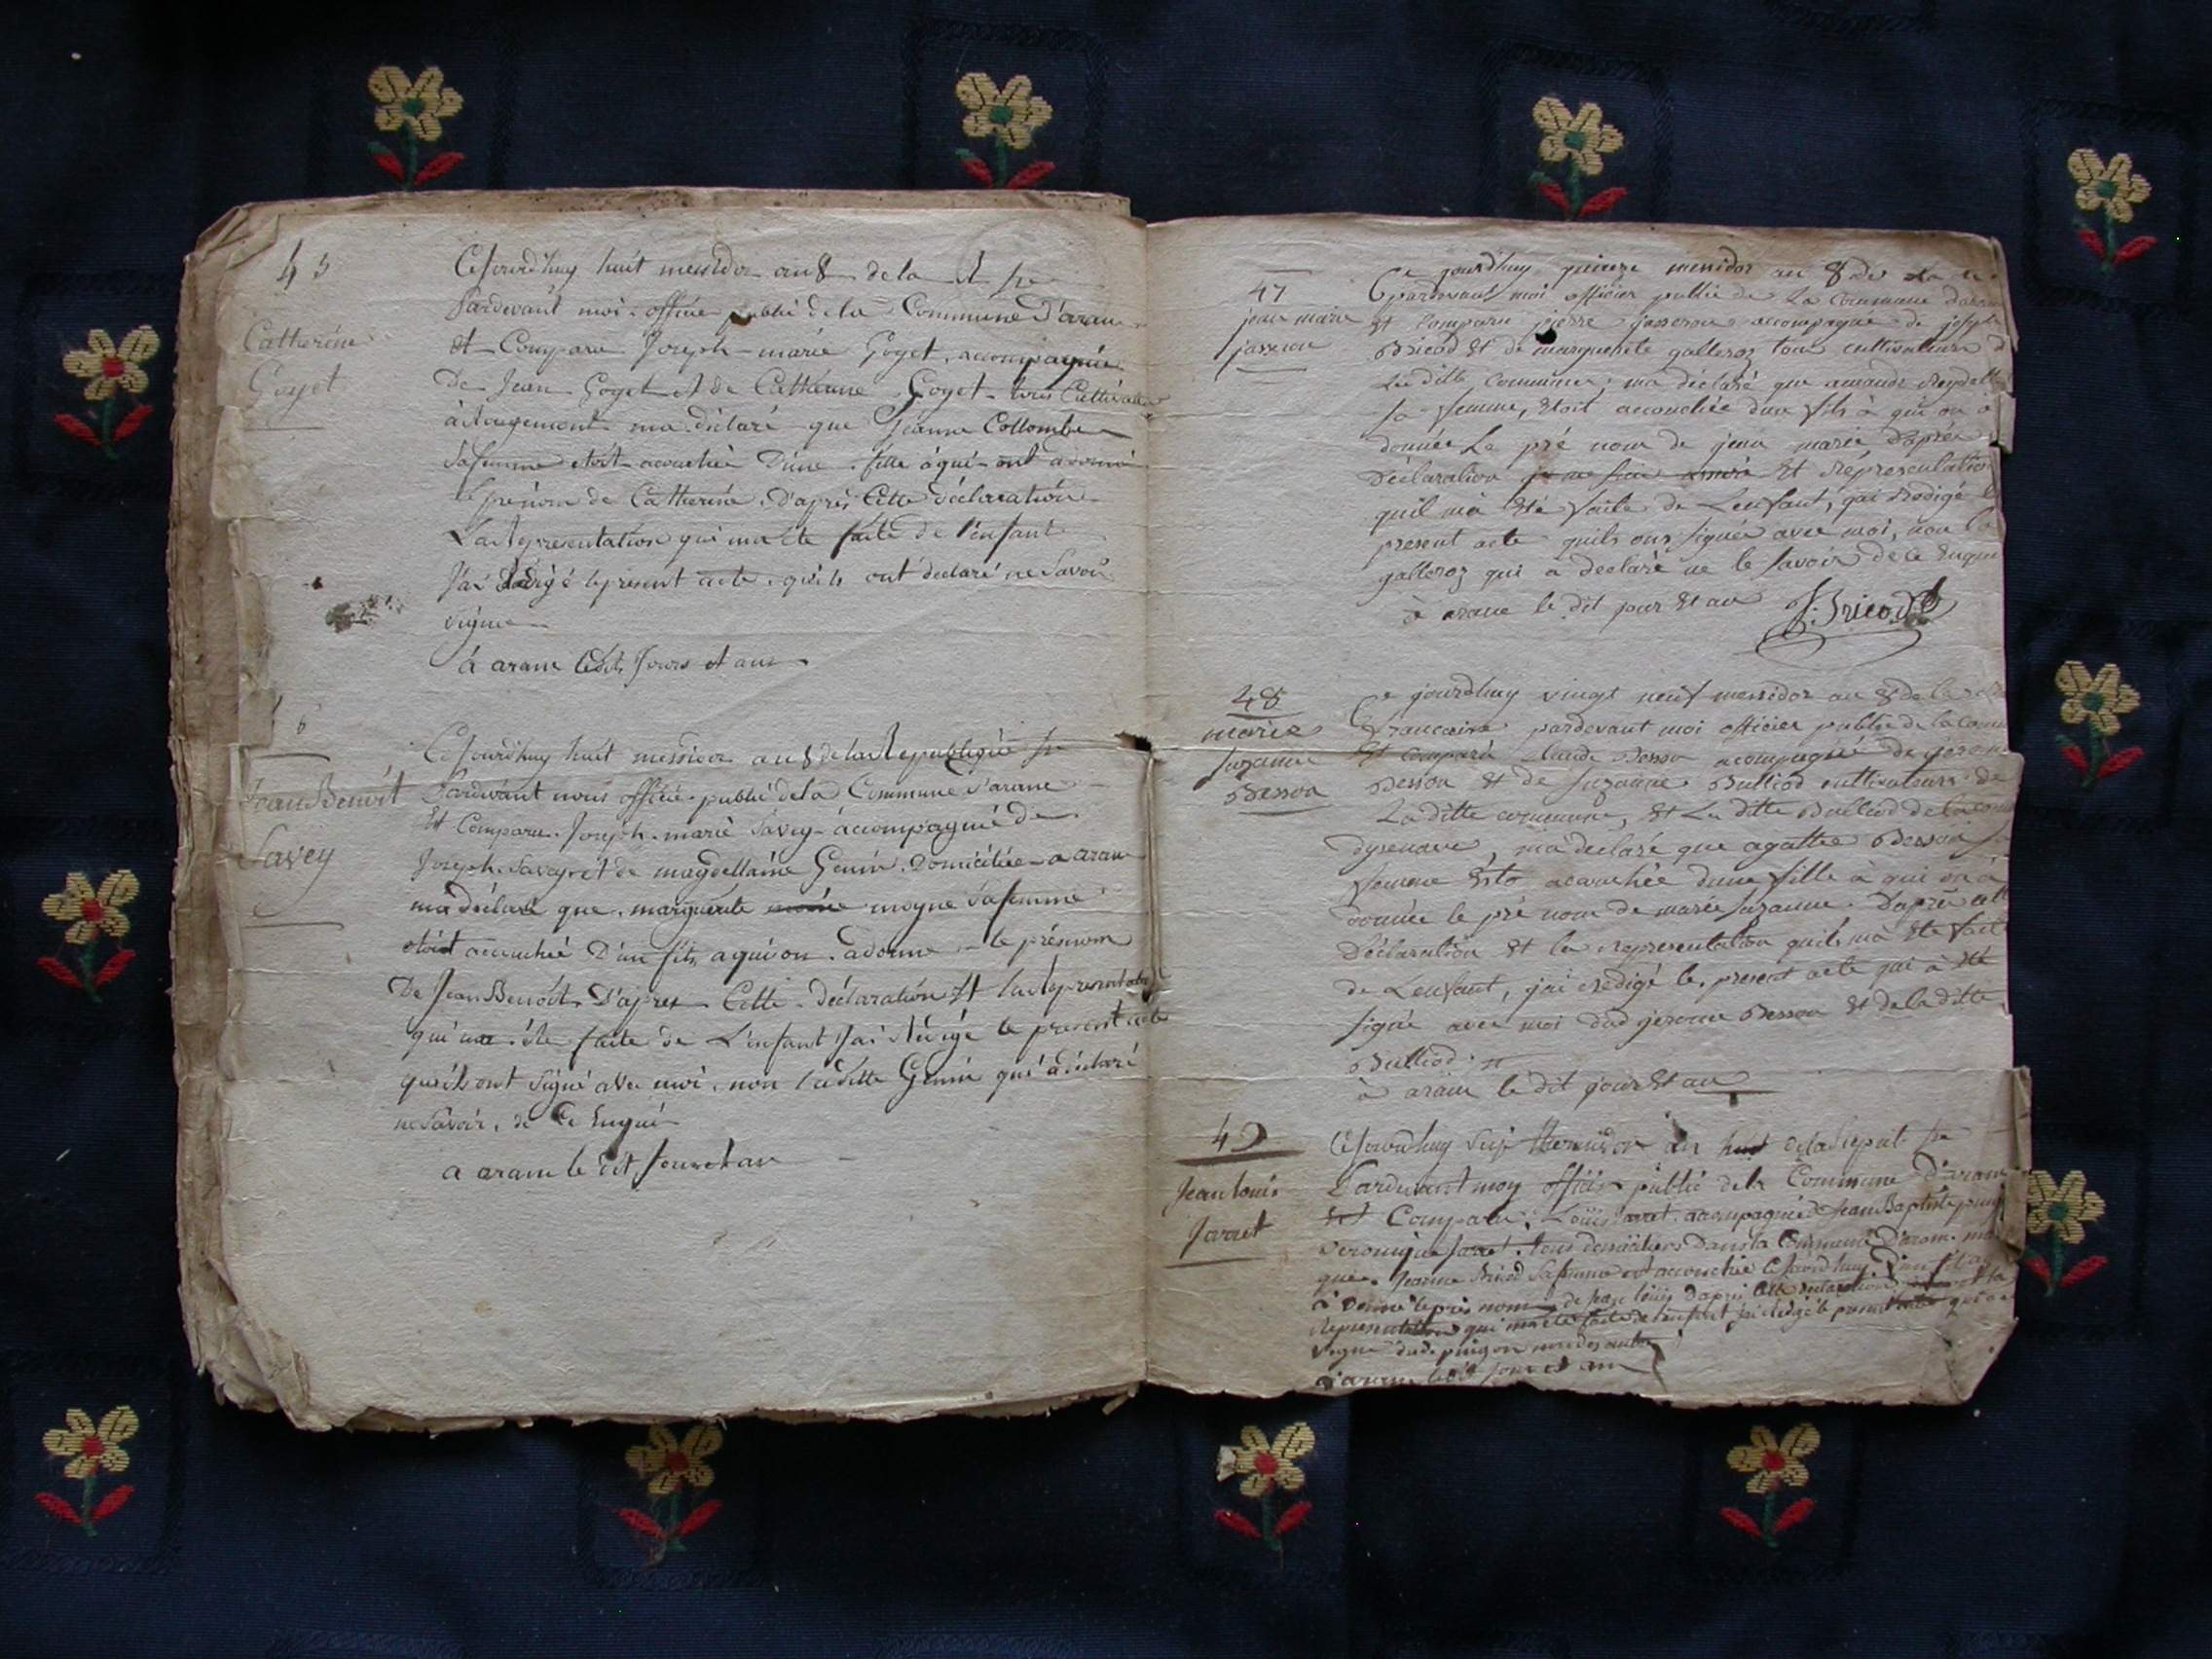 45
Catherine
Goyet
Cejourdhuy huit messidor an 8 de la R fse
Pardevant moi officier public de la Commune d'aranc
Et Comparu Joseph-marie Goyet, accompagnée
De Jean Goyet et de Catherine Goyet tous Cultivateur
à ma déclaré que Jeanne Collombe
Safemme etoit accouchée D'une fille à qui ont a donné
le prénom de Catherine D'après Cette déclaration
La Representation qui ma ete faite de l'enfant
J'ai Rédigé le present acte qu'ils ont déclaré ne Savoir
Signer
à aranc ledit Jours et an
6
Jean Benoit
Savey
Cejourdhuy huit messidor an 8 de la Republique fse
Pardevant nous officier public de la Commune d'aranc
Et Comparu Joseph marie Savey accompagné de
Joseph Savey et de magdellaine Genin Domiciliée a aranc
ma déclaré que marguerite moyne Safemme
étoit accouchée D'un fils a qui on a donné le prénom
De Jean Benoit D'apres Cette déclaration Et la Representation
qui ma éte faite de L'enfant J'ai Rédigé le present acte
qu'ils ont Signé avec moi non ladite Genin qui a déclaré
ne Savoir, de Ce Enquis
a aranc le dit Jour et an
47
jean marie
jasseron
Ce jourdhuy quinze messidor an 8 de la
pardevant moi officier public de La commune d'aranc
Et Comparu pierre jasseron accompagné de joseph
Bricod Et de marguerite galleroz tous cultivateurs d
La ditte commune; ma déclaré que amande Reydelle
sa femme, Etoit accouchée d'un fils à qui on à
donnée Le pré nom de jean marie d'après
Déclaration Et Répresentation
quil mà Eté faite de L'enfant, jai Rédigé le
present acte quils ons signée avec moi, non la
galleroz qui a déclaré ne le savoir de ce Enquis
à aranc le dit jour Et an J. Bricod
48
marie
suzanne
Besson
Ce jourdhuy vingt neuf messidor an 8 de la
francaise pardevant moi officier public de la com
Et Comparu Claude Besson accompagné de jerome
Besson Et de suzanne Bulliod cultivateurs de
La ditte commune, Et La ditte Bulliod de la com
dysenave, mà declaré que agathe Besson s
femme Eto accouchée d'une fille à qui on à
donnée le pré nom de marie suzanne. D'après cett
Déclaration Et la representation quils mà Eté fait
de L'enfant, jai redigé le present acte qui à Eté
signé avec moi dud jerome Besson Et de la ditte
Bulliod
à aranc le dit jour Et an
49
Jean louis
Javaret
Cejourdhuy Six thermidor an huit de la Repub fse
Pardevant moy officier public de la Commune D'aranc
Est Comparu, Louis accompagné de Jean Baptiste
Veronique tous domiciliers Dans la Commune D'aranc ma
que Jeanne Bricod Safemme est accouchée Cejourdhuy D'un fils
à donné le prés nom de jean louis D'après Cette declaration et la
Representation qui ma ete faite de l'enfant j'ai redigé le present acte qui a
Signé dud pingon non des autres
à aranc ledit jour et an